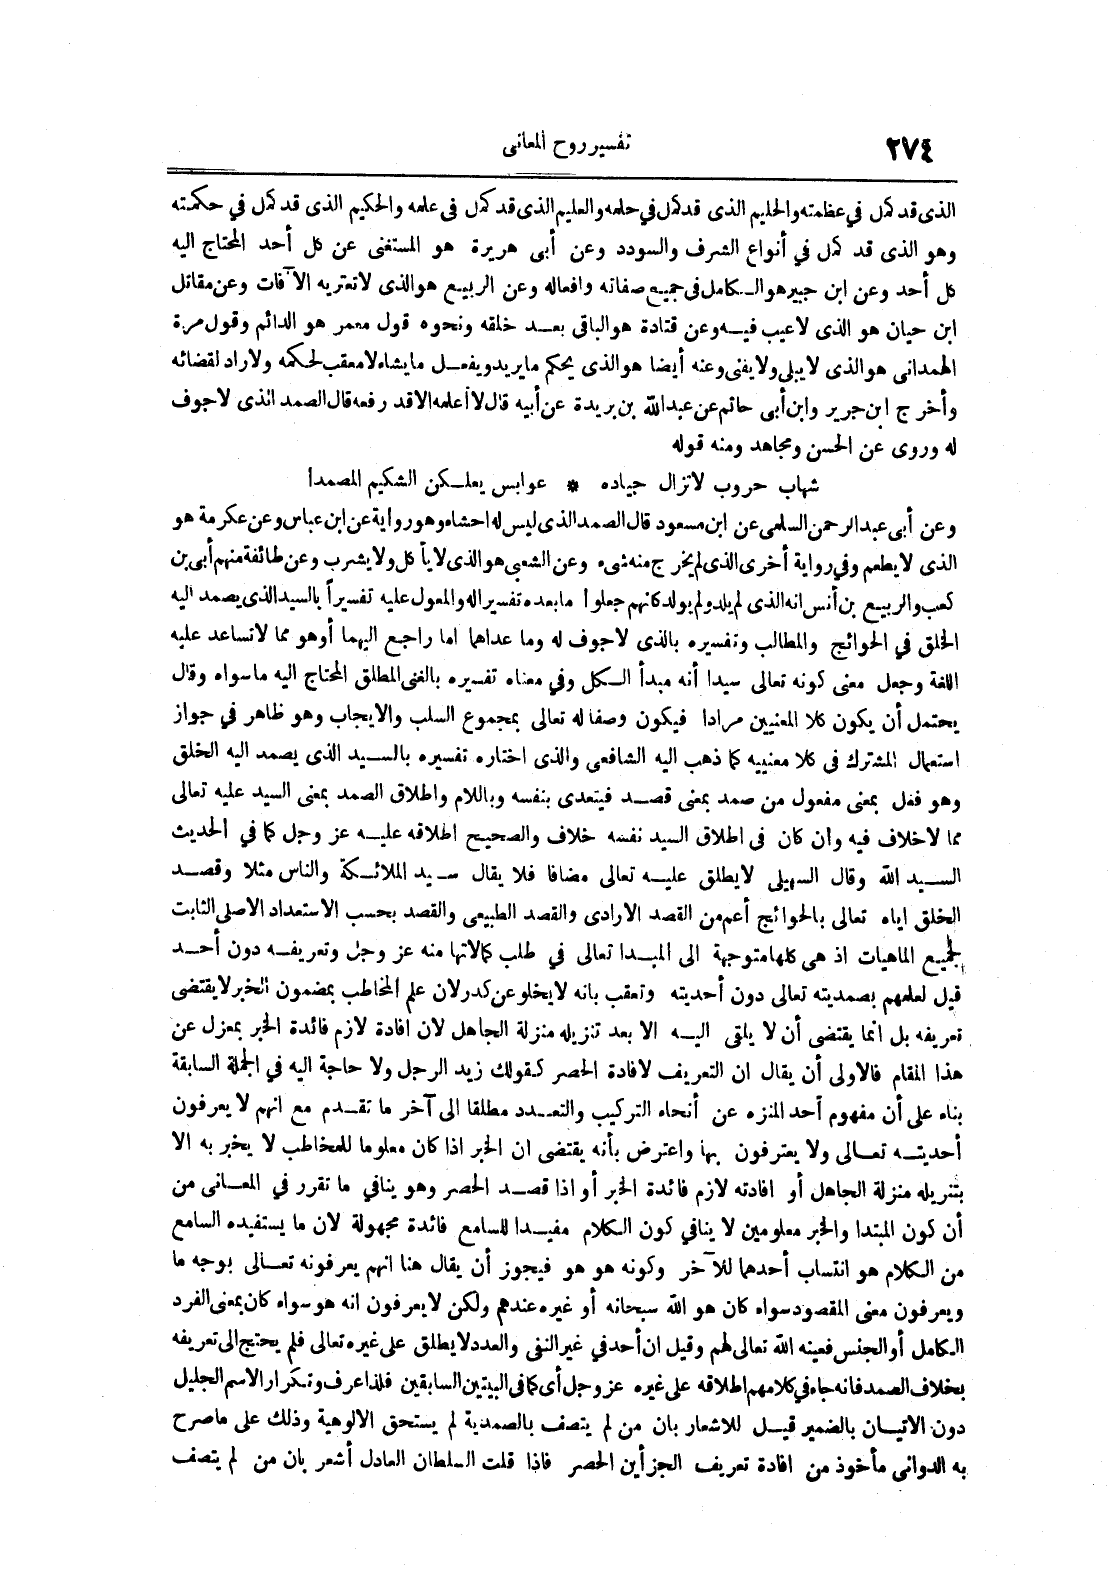 ٢٧٤
تفسير روح المعانى
الذى قد كمل في عظمته والحليم الذى قد كمل في حلمه والعليم الذى قد كمل فى علمه والحكيم الذى قد كمل في حكمته
وهو الذى قد كمل في أنواع الشرف والسودد وعن أبى هريرة هو المستغنى عن كل أحد المحتاج اليه
كل أحد وعن ابن جبير هو الكامل فى جميع صفاته وافعاله وعن الربيع هو الذى لا تعتريه الآفات وعن مقاتل
ابن حيان هو الذى لا عيب فيه وعن قتادة هو الباقى بعد خلقه ونحوه قول معمر هو الدائم وقول مرة
الهمدانى هو الذى لا يبلى ولا يفنى وعنه أيضا هو الذى يحكم ما يريد ويفعل ما يشاء لا معقب لحكمه ولا راد لقضائه
وأخرج ابن جرير وابن أبى حاتم عن عبدالله بن بريدة عن أبيه قال لا أعلمه الا قد رفعه قال الصمد الذى لا جوف
له وروى عن الحسن ومجاهد ومنه قوله
شهاب حروب لا تزال جياده * عوابس يعلكن الشكيم المصمدا
وعن أبى عبد الرحمن السلمى عن ابن مسعود قال الصمد الذى ليس له احشاء وهو رواية عن ابن عباس وعن عكرمة هو
الذى لا يطعم وفي رواية أخرى الذى لم يخرج منه شىء وعن الشعبى هو الذى لا يأكل ولا يشرب وعن طائفة منهم أبى بن
كعب والربيع بن أنس انه الذى لم يلد ولم يولد كانهم جعلوا ما بعده تفسيرا له والمعول عليه تفسيراً بالسيد الذى يصمد اليه
الخلق في الحوائج والمطالب وتفسيره بالذى لا جوف له وما عداهما اما راجع اليهما أو هو مما لا تساعد عليه
اللغة وجعل معنى كونه تعالى سيدا أنه مبدأ الكل وفي معناه تفسيره بالغنى المطلق المحتاج اليه ما سواه وقال
يحتمل أن يكون كلا المعنيين مرادا فيكون وصفا له تعالى بمجموع السلب والايجاب وهو ظاهر في جواز
استعمال المشترك فى كلا معنييه كما ذهب اليه الشافعى والذى اختاره تفسيره بالسيد الذى يصمد اليه الخلق
وهو فعل بمعنى مفعول من صمد بمعنى قصد فيتعدى بنفسه وباللام واطلاق الصمد بمعنى السيد عليه تعالى
مما لا خلاف فيه وان كان فى اطلاق السيد نفسه خلاف والصحيح اطلاقه عليه عز وجل كما في الحديث
السيد الله وقال السهيلى لا يطلق عليه تعالى مضافا فلا يقال سيد الملائكة والناس مثلا وقصد
الخلق اياه تعالى بالحوائج أعم من القصد الارادى والقصد الطبيعى والقصد بحسب الاستعداد الاصلى الثابت
لجميع الماهيات اذ هى كلها متوجهة الى المبدا تعالى في طلب كمالاتها منه عز وجل وتعريفه دون أحد
قيل لعلمهم بصمديته تعالى دون أحديته وتعقب بانه لا يخلو عن كدر لان علم المخاطب بمضمون الخبر لا يقتضى
تعريفه بل انما يقتضى أن لا يلقى اليه الا بعد تنزيله منزلة الجاهل لان افادة لازم فائدة الخبر بمعزل عن
هذا المقام فالاولى أن يقال ان التعريف لافادة الحصر كقولك زيد الرجل ولا حاجة اليه في الجملة السابقة
بناء على أن مفهوم أحد المنزه عن أنحاء التركيب والتعدد مطلقا الى آخر ما تقدم مع انهم لا يعرفون
أحديته تعالى ولا يعترفون بها واعترض بأنه يقتضى ان الخبر اذا كان معلوما للمخاطب لا يخبر به الا
بتنزيله منزلة الجاهل أو افادته لازم فائدة الخبر أو اذا قصد الحصر وهو ينافي ما تقرر في المعانى من
أن كون المبتدا والخبر معلومين لا ينافي كون الكلام مفيدا للسامع فائدة مجهولة لان ما يستفيده السامع
من الكلام هو انتساب أحدهما للآخر وكونه هو هو فيجوز أن يقال هنا انهم يعرفونه تعالى بوجه ما
ويعرفون معنى المقصود سواء كان هو الله سبحانه أو غيره عندهم ولكن لا يعرفون انه هو سواء كان بمعنى الفرد
الكامل أو الجنس فعينه الله تعالى لهم وقيل ان أحد في غير النفى والعدد لا يطلق على غيره تعالى فلم يحتج الى تعريفه
بخلاف الصمد فانه جاء في كلامهم اطلاقه على غيره عز وجل أى كما فى البيتين السابقين فلذا عرف وتكرار الاسم الجليل
دون الاتيان بالضمير قيل للاشعار بان من لم يتصف بالصمدية لم يستحق الالوهية وذلك على ما صرح
به الدوانى مأخوذ من افادة تعريف الجزأين الحصر فاذا قلت السلطان العادل أشعر بان من لم يتصف